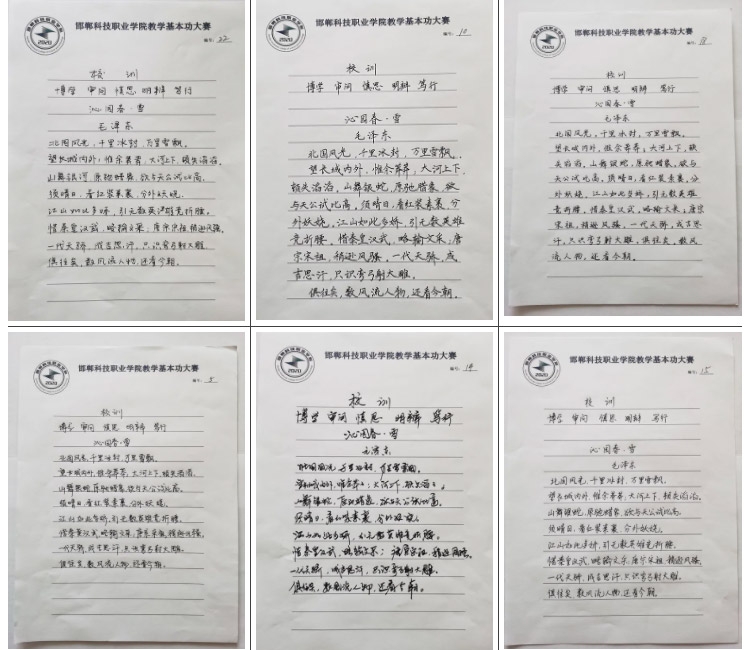 邯郸科技职业学院教学基本功大赛
编号: 22
校 训
博学 审问 慎思 明辨 笃行
沁园春·雪
毛泽东
北国风光,千里冰封,万里雪飘。
望长城内外,惟余莽莽,大河上下,顿失滔滔。
山舞银蛇,原驰蜡象,欲与天公试比高。
须晴日,看红装素裹,分外妖娆。
江山如此多娇,引无数英雄竞折腰。
惜秦皇汉武,略输文采,唐宗宋祖,稍逊风骚。
一代天骄,成吉思汗,只识弯弓射大雕。
俱往矣,数风流人物,还看今朝。
邯郸科技职业学院教学基本功大赛
编号: 10
校 训
博学 审问 慎思 明辨 笃行
沁园春·雪
毛泽东
北国风光,千里冰封,万里雪飘。
望长城内外,惟余莽莽;大河上下,
顿失滔滔。山舞银蛇,原驰蜡象,欲
与天公试比高。须晴日,看红装素裹,分
外妖娆。江山如此多娇,引无数英雄
竞折腰。惜秦皇汉武,略输文采,唐
宗宋祖,稍逊风骚。一代天骄,成
吉思汗,只识弯弓射大雕。
俱往矣,数风流人物,还看今朝。
邯郸科技职业学院教学基本功大赛
编号: 18
校训
博学 审问 慎思 明辨 笃行
沁园春·雪
毛泽东
北国风光,千里冰封,万里雪飘。
望长城内外,惟余莽莽,大河上下,顿
失滔滔。山舞银蛇,原驰蜡象,欲与
天公试比高。须晴日,看红装素裹,分
外妖娆。江山如此多娇,引无数英雄
竞折腰。惜秦皇汉武,略输文采,唐宗
宋祖,稍逊风骚。一代天骄,成吉思
汗,只识弯弓射大雕。俱往矣,数风
流人物,还看今朝。
邯郸科技职业学院教学基本功大赛
编号: 5
校训
博学 审问 慎思 明辨 笃行
沁园春·雪
北国风光,千里冰封,万里雪飘。
望长城内外,惟余莽莽;大河上下,顿失滔滔。
山舞银蛇,原驰蜡象,欲与天公试比高。
须晴日,看红装素裹,分外妖娆。
江山如此多娇,引无数英雄竞折腰。
惜秦皇汉武,略输文采,唐宗宋祖,稍逊风骚。
一代天骄,成吉思汗,只识弯弓射大雕。
俱往矣,数风流人物,还看今朝。
邯郸科技职业学院教学基本功大赛
编号: 14
校 训
博学 审问 慎思 明辨 笃行
沁园春·雪
毛泽东
北国风光,千里冰封,万里雪飘。
望长城内外,惟余莽莽;大河上下,顿失滔滔。
山舞银蛇,原驰蜡象,欲与天公试比高。
须晴日,看红装素裹,分外妖娆。
江山如此多娇,引无数英雄竞折腰。
惜秦皇汉武,略输文采;唐宗宋祖,稍逊风骚。
一代天骄,成吉思汗,只识弯弓射大雕。
俱往矣,数风流人物,还看今朝。
邯郸科技职业学院教学基本功大赛
编号: 15
校 训
博学 审问 慎思 明辨 笃行
沁园春·雪
毛泽东
北国风光,千里冰封,万里雪飘。
望长城内外,惟余莽莽,大河上下,顿失滔滔。
山舞银蛇,原驰蜡象,欲与天公试比高。
须晴日,看红装素裹,分外妖娆。
江山如此多娇,引无数英雄竞折腰。
惜秦皇汉武,略输文采,唐宗宋祖,稍逊风骚。
一代天骄,成吉思汗,只识弯弓射大雕。
俱往矣,数风流人物,还看今朝。